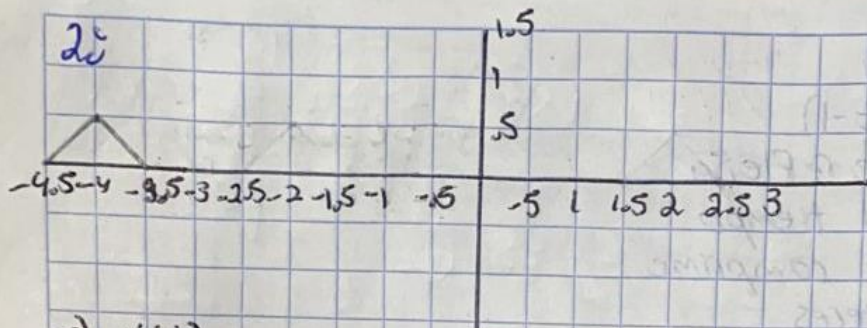 2i
1.5
1
.5
-4.5 -4 -3.5 -3 -2.5 -2 -1.5 -1 -.5 .5 1 1.5 2 2.5 3